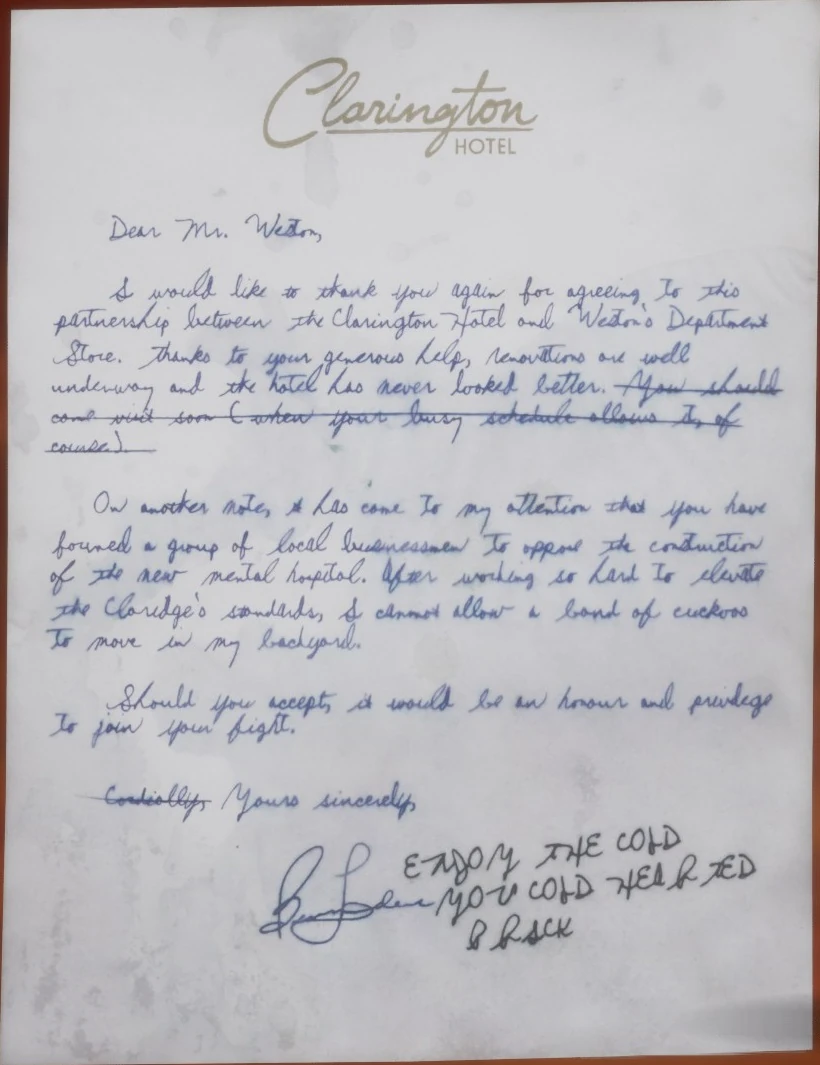 Clarington
HOTEL
Dear Mr. Weston,
I would like to thank you again for agreeing to this
partnership between the Clarington Hotel and Weston's Department
Store. Thanks to your generous help, renovations are well
underway and the hotel has never looked better. You should
come visit soon (when your busy schedule allows it, of
course).
On another note, it has come to my attention that you have
formed a group of local businessmen to oppose the construction
of the new mental hospital. After working so hard to elevate
the Claridge's standards, I cannot allow a band of cuckoos
to move in my backyard.
Should you accept, it would be an honour and privilege
to join your fight.
Cordially, Yours sincerely,
ENJOY THE COLD
YOU COLD HEARTED